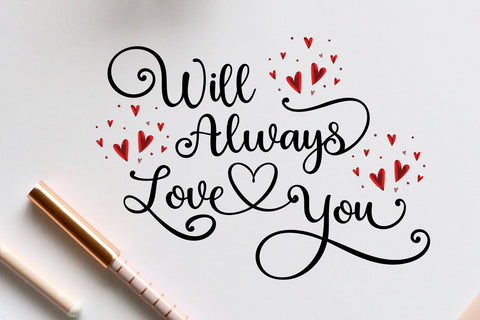 Will
Always
Love You